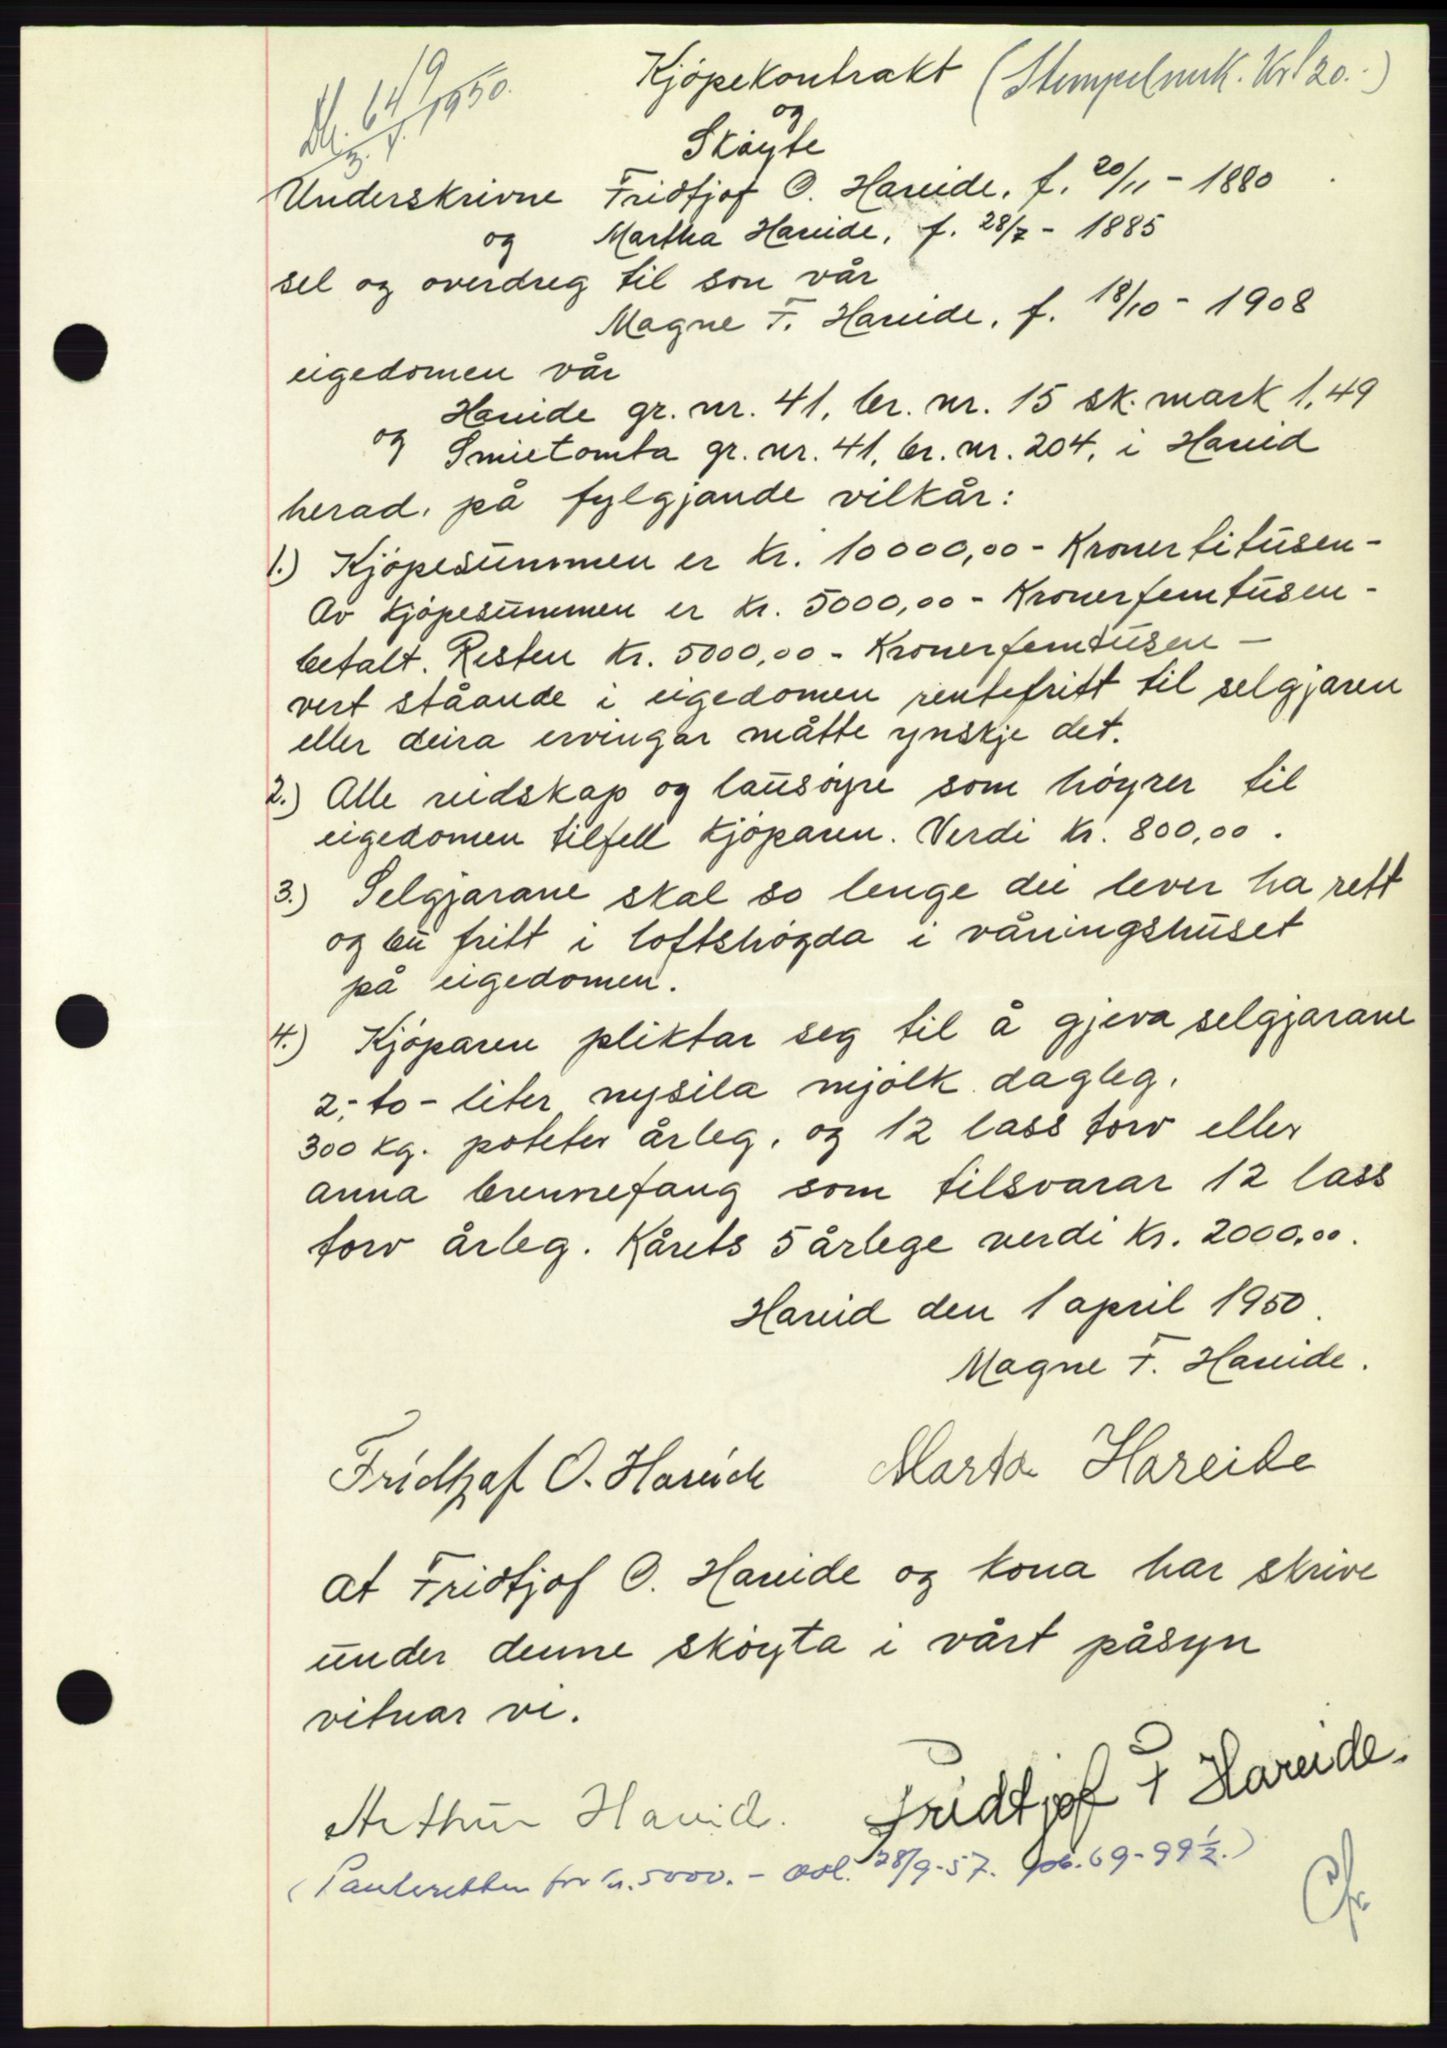 Db. 649
3. 4. 1950.
Kjöpekontrakt (Stempelmrk. Kr 120.-)
og
Sköyte
Underskrivne Fridtjof O. Hareide, f. 20/11 - 1880
og Martha Hareide, f. 28/7 - 1885
sel og overdreg til son vår
Magne F. Hareide, f. 18/10 - 1908
eigedomen vår
Hareide gr. nr. 41, br. nr. 15 sk. mark 1,49
og Smietomta gr. nr. 41, br. nr. 204, i Hareid
herad, på fylgjande vilkår:
1.) Kjöpesummen er kr. 10000,00 - Kroner titusen -
Av kjöpesummen er kr. 5000,00 - Kronerfemtusen -
betalt. Resten kr. 5000,00 - Kronerfemtusen -
vert ståande i eigedomen rentefritt til selgjaren
eller deira ervingar måtte ynskje det.
2.) Alle reidskap og lausöyre som höyrer til
eigedomen tilfell kjöparen. Verdi kr. 800,00.
3.) Selgjarane skal so lenge dei lever ha rett
og bu fritt i loftshögda i våningshuset
på eigedomen.
4.) Kjöparen pliktar seg til å gjeva selgjarane
2,- to - liter nysila mjölk dagleg,
300 kg. poteter årleg, og 12 lass torv eller
anna brennefang som tilsvarar 12 lass
torv årleg. Kårets 5 årlege verdi kr. 2000,00.
Hareid den 1 april 1950.
Magne F. Hareide.
Fridtjof O. Hareide Marta Hareide
At Fridtjof O. Hareide og kona har skrive
under denne sköyta i vårt påsyn
vitnar vi.
Arthur Hareid. Fridtjof F Hareide.
(Panteretten for kr. 5000.- avl. 28/9-57. pb. 69-99½.)